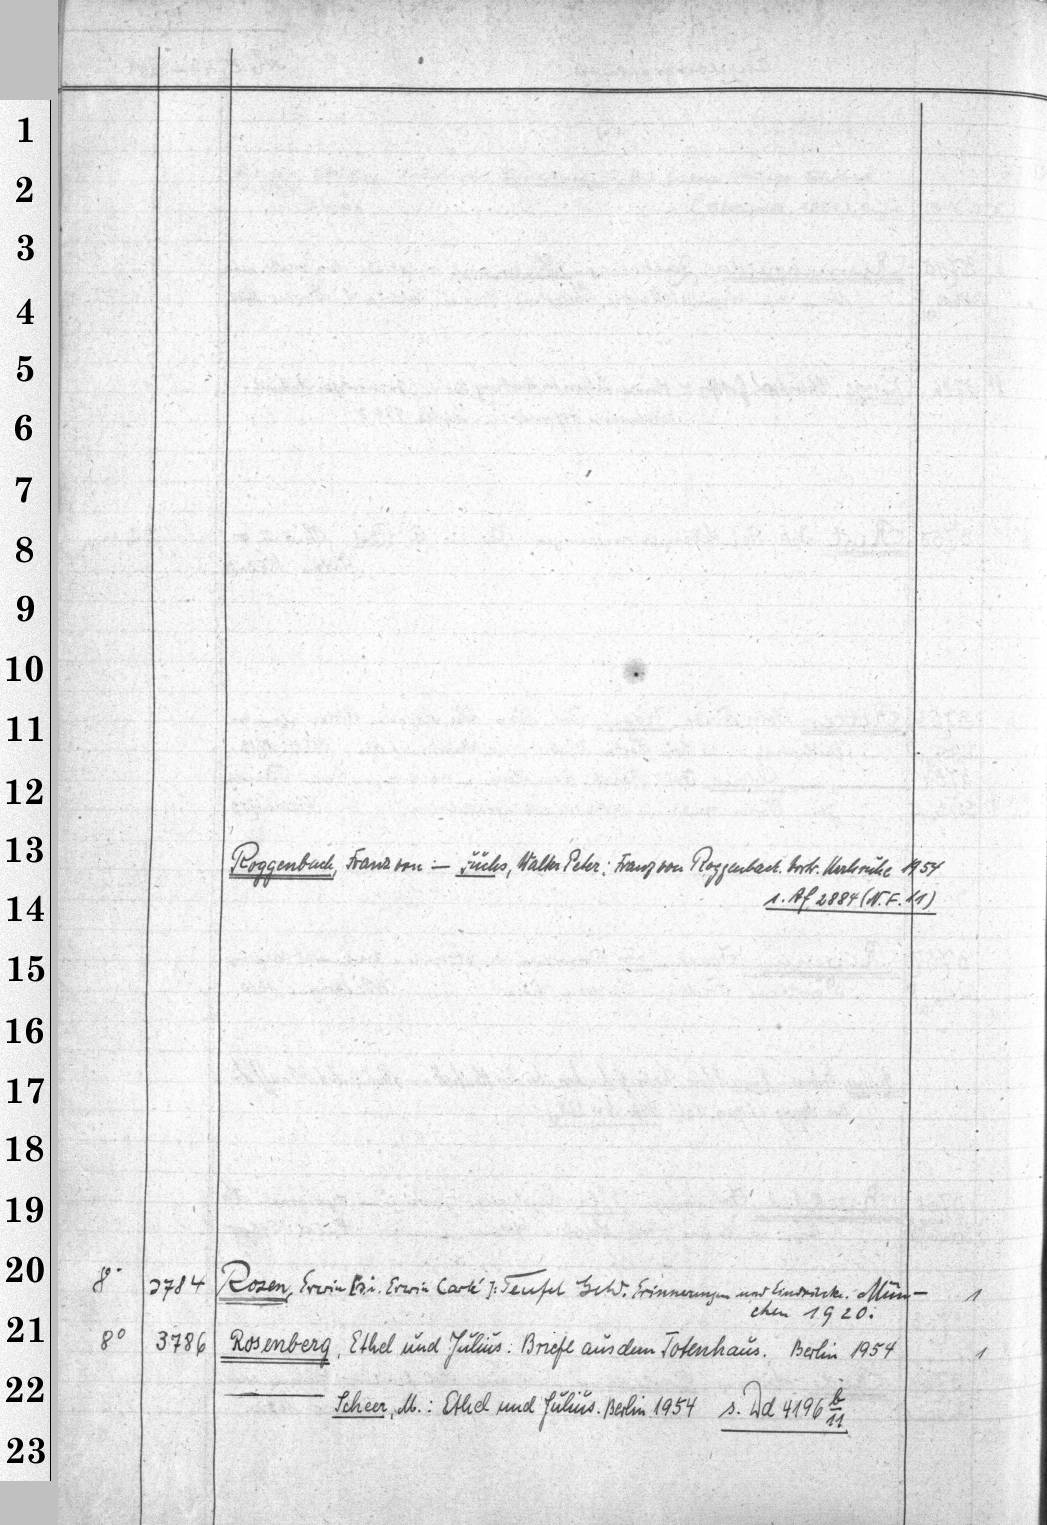 1
2
3
4
5
6
7
8
9
10
11
12
13
Roggenbach, Franz von :— Fuchs, Walter Peter: Franz von Roggenbach. Vortr. Karlsruhe 1954
14
s. Af 2884 (N.F. 11)
15
16
17
18
19
20
8° 3784 Rosen, Erwin [d.i. Erwin Carlé]: Teufel Geld. Erinnerungen und Eindrücke. Mün-
chen 1920. 1
21
8° 3786 Rosenberg, Ethel und Julius: Briefe aus dem Totenhaus. Berlin 1954 1
22
—— Scheer, M.: Ethel und Julius. Berlin 1954 s. Dd 4196 b/11
23